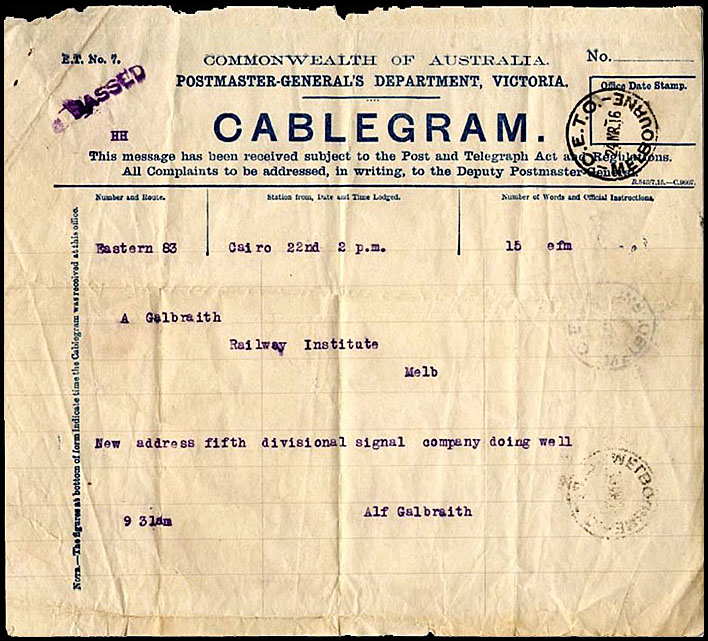 E.T. No. 7.
COMMONWEALTH OF AUSTRALIA.
No.
PASSED
POSTMASTER-GENERAL'S DEPARTMENT, VICTORIA.
Office Date Stamp.
C.E.T.O.-MELBOURNE
24MR16
HH
CABLEGRAM.
This message has been received subject to the Post and Telegraph Act and Regulations.
All Complaints to be addressed, in writing, to the Deputy Postmaster-General.
B.543/7.15.—C.9667.
Number and Route.
Station from, Date and Time Lodged.
Number of Words and Official Instructions.
Eastern 83
Cairo 22nd 2 p.m.
15 efm
A Galbraith
Railway Institute
Melb
New address fifth divisional signal company doing well
9 31am
Alf Galbraith
MELBOURNE
NOTE.—The figures at bottom of form indicate time the Cablegram was received at this office.